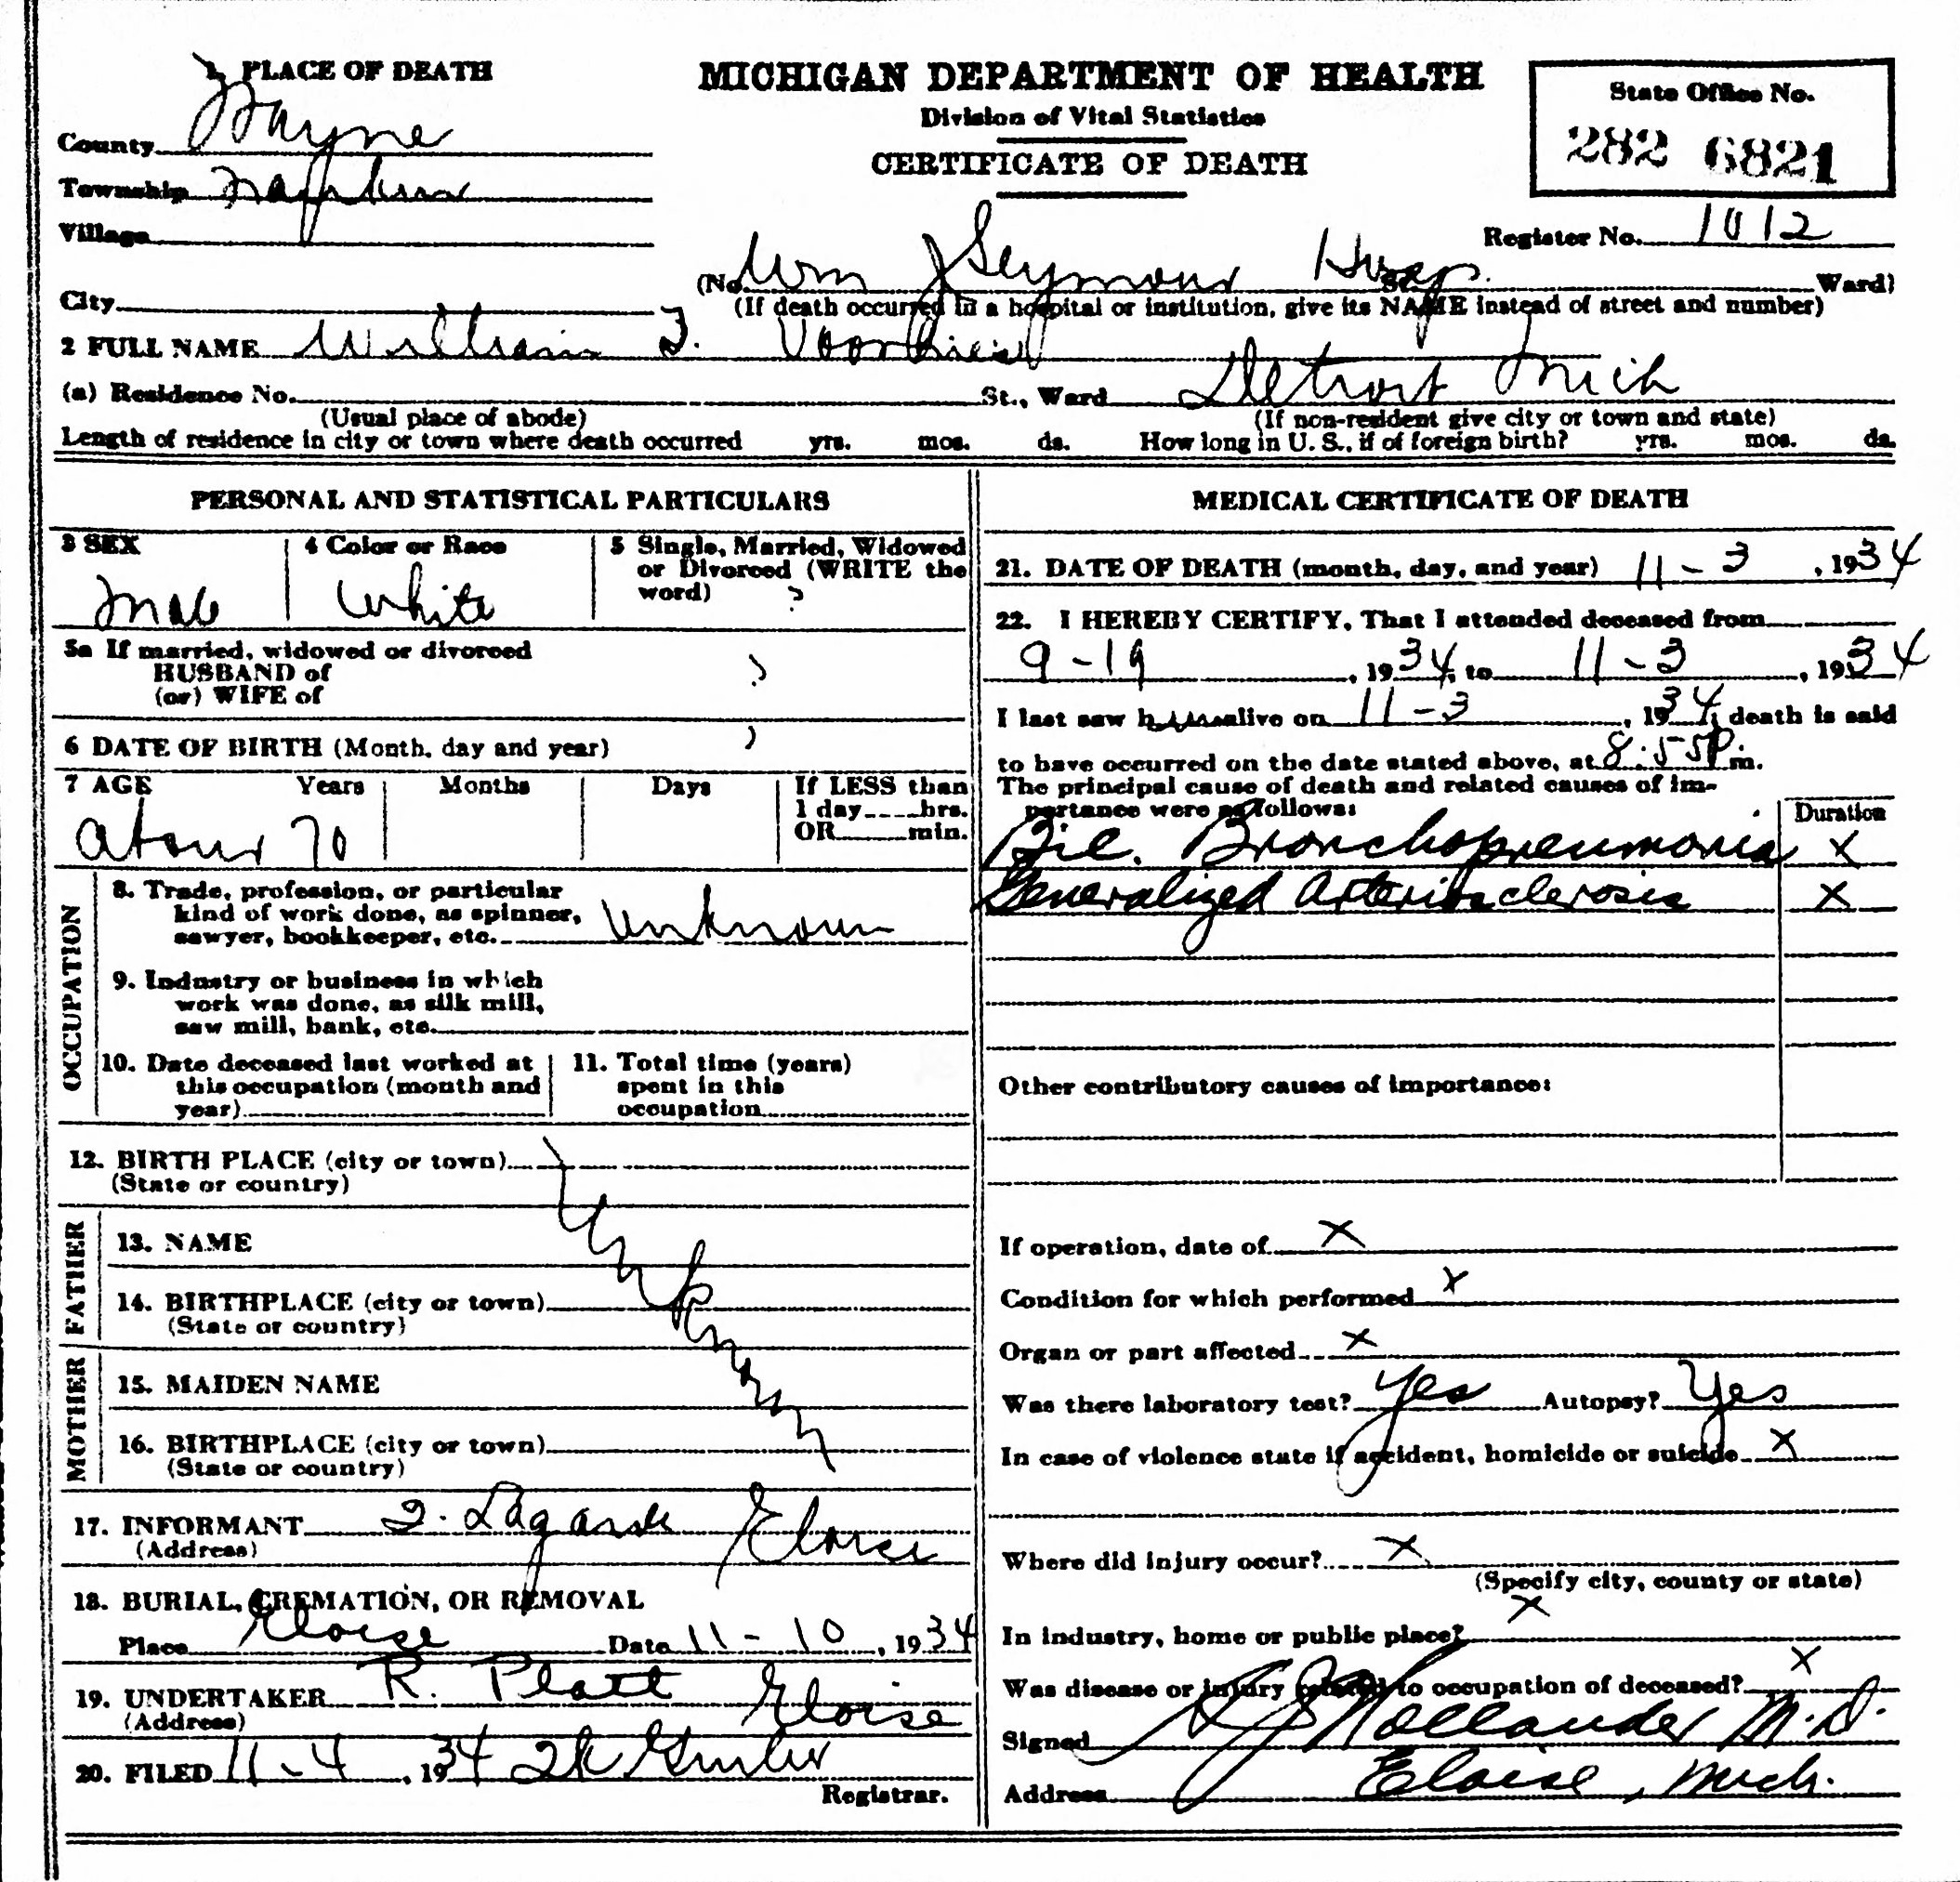 1. PLACE OF DEATH
MICHIGAN DEPARTMENT OF HEALTH
Division of Vital Statistics
CERTIFICATE OF DEATH
State Office No.
282 6821
County Wayne
Township Nankin
Village
Register No. 1012
City
(No. Wm J Seymour Hosp. St. Ward)
(If death occurred in a hospital or institution, give its NAME instead of street and number)
2 FULL NAME William Voorhies
(a) Residence No. St., Ward Detroit Mich
(Usual place of abode) (If non-resident give city or town and state)
Length of residence in city or town where death occurred yrs. mos. ds. How long in U. S., if of foreign birth? yrs. mos. ds.
PERSONAL AND STATISTICAL PARTICULARS
3 SEX 4 Color or Race 5 Single, Married, Widowed
or Divorced (WRITE the
word) ?
Male White
5a If married, widowed or divorced
HUSBAND of ?
(or) WIFE of
6 DATE OF BIRTH (Month, day and year) ?
7 AGE Years Months Days If LESS than
1 day hrs.
OR min.
about 70
OCCUPATION
8. Trade, profession, or particular
kind of work done, as spinner,
sawyer, bookkeeper, etc. Unknown
9. Industry or business in which
work was done, as silk mill,
saw mill, bank, etc.
10. Date deceased last worked at
this occupation (month and
year)
11. Total time (years)
spent in this
occupation
12. BIRTH PLACE (city or town)
(State or country)
Unknown
FATHER
13. NAME
14. BIRTHPLACE (city or town)
(State or country)
MOTHER
15. MAIDEN NAME
16. BIRTHPLACE (city or town)
(State or country)
17. INFORMANT Lagarde Eloise
(Address)
18. BURIAL, CREMATION, OR REMOVAL
Place Eloise Date 11-10, 1934
19. UNDERTAKER R. Platt Eloise
(Address)
20. FILED 11-4, 1934
Registrar.
MEDICAL CERTIFICATE OF DEATH
21. DATE OF DEATH (month, day, and year) 11-3, 1934
22. I HEREBY CERTIFY, That I attended deceased from
9-19, 1934, to 11-3, 1934
I last saw him alive on 11-3, 1934, death is said
to have occurred on the date stated above, at 8:55P.m.
The principal cause of death and related causes of im-
portance were as follows:
Duration
Bil. Bronchopneumonia X
Generalized Arteriosclerosis X
Other contributory causes of importance:
If operation, date of X
Condition for which performed X
Organ or part affected X
Was there laboratory test? Yes Autopsy? Yes
In case of violence state if accident, homicide or suicide X
Where did injury occur? X
(Specify city, county or state)
In industry, home or public place? X
Was disease or injury related to occupation of deceased? X
Signed Hollander M.D.
Address Eloise, Mich.